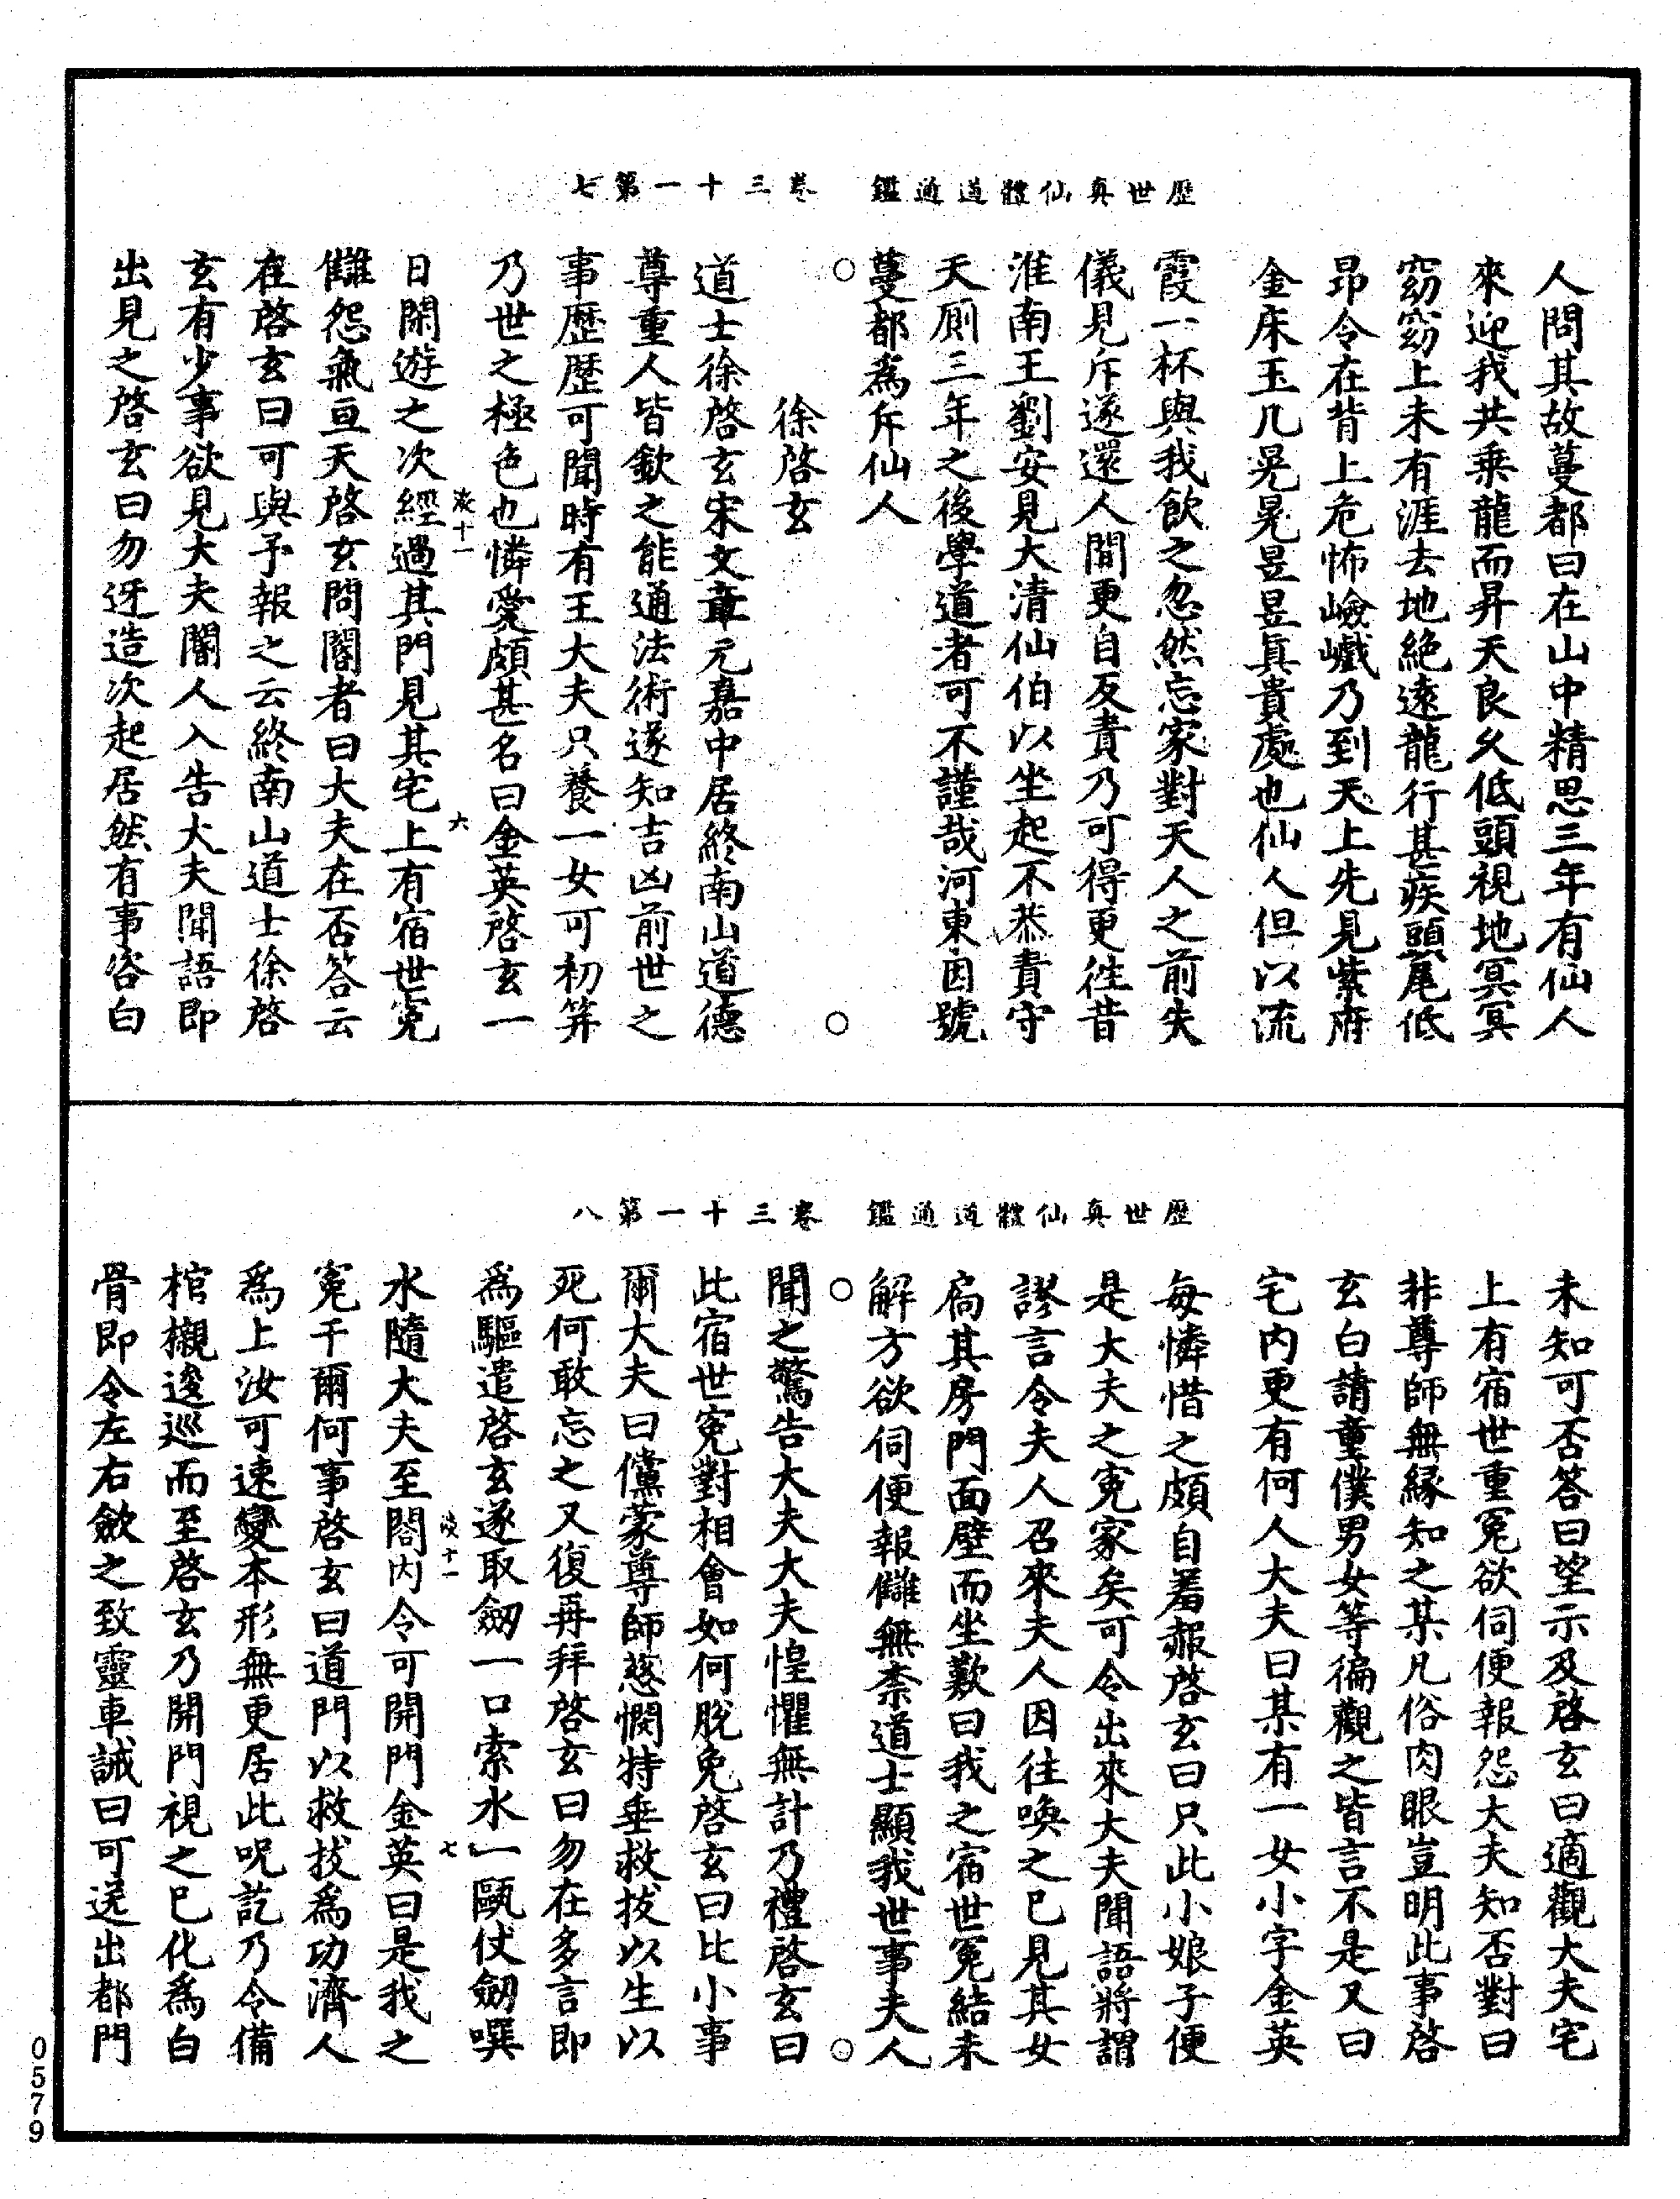 歷世真仙體道通鑑　卷三十一第七
人問其故蔓都曰在山中精思三年有仙人
來迎我共乗龍而昇天良久低頭視地冥冥
窈窈上未有涯去地絶遠龍行甚疾頭尾低
昂令在背上危怖嶮巇乃到天上先見紫府
金床玉几晃晃昱昱真貴處也仙人但以流
霞一杯與我飲之忽然忘家對天人之前失
儀見斥遂還人間更自反責乃可得更徃昔
淮南王劉安見大清仙伯以坐起不恭責守
天厠三年之後學道者可不謹哉河東因號
蔓都爲斥仙人
○　○
徐啓玄
道士徐啓玄宋文章元嘉中居終南山道德
尊重人皆欽之能通法術遂知吉凶前世之
事歷歷可聞時有王大夫只養一女可初笄
乃世之極色也憐愛頗甚名曰金英啓玄一
日閑遊之次經過其門見其宅上有宿世寃
讎怨氣亘天啓玄問閽者曰大夫在否答云
在啓玄曰可與予報之云終南山道士徐啓
玄有少事欲見大夫閽人入告大夫聞語即
出見之啓玄曰勿迓造次起居然有事咨白
十一　六
歷世真仙體道通鑑　卷三十一第八
未知可否答曰望示及啓玄曰適觀大夫宅
上有宿世重冤欲伺便報怨大夫知否對曰
非尊師無緣知之某凡俗肉眼豈明此事啓
玄白請童僕男女等徧觀之皆言不是又曰
宅内更有何人大夫曰某有一女小字金英
每憐惜之頗自羞赧啓玄曰只此小娘子便
是大夫之寃家矣可令出來大夫聞語將謂
謬言令夫人召來夫人因往喚之已見其女
扃其房門面壁而坐歎曰我之宿世冤結未
解方欲伺便報讎無柰道士顯我世事夫人
○　○
聞之驚告大夫大夫惶懼無計乃禮啓玄曰
此宿世寃對相會如何脫免啓玄曰比小事
爾大夫曰儻蒙尊師慈憫特垂救拔以生以
死何敢忘之又復再拜啓玄曰勿在多言即
爲驅遣啓玄遂取劒一口索水一甌仗劒噀
水隨大夫至閤内令可開門金英曰是我之
寃干爾何事啓玄曰道門以救拔爲功濟人
爲上汝可速變本形無更居此呪訖乃令備
棺櫬逡巡而至啓玄乃開門視之已化爲白
骨即令左右歛之致靈車誡曰可送出都門
十一　七
0579